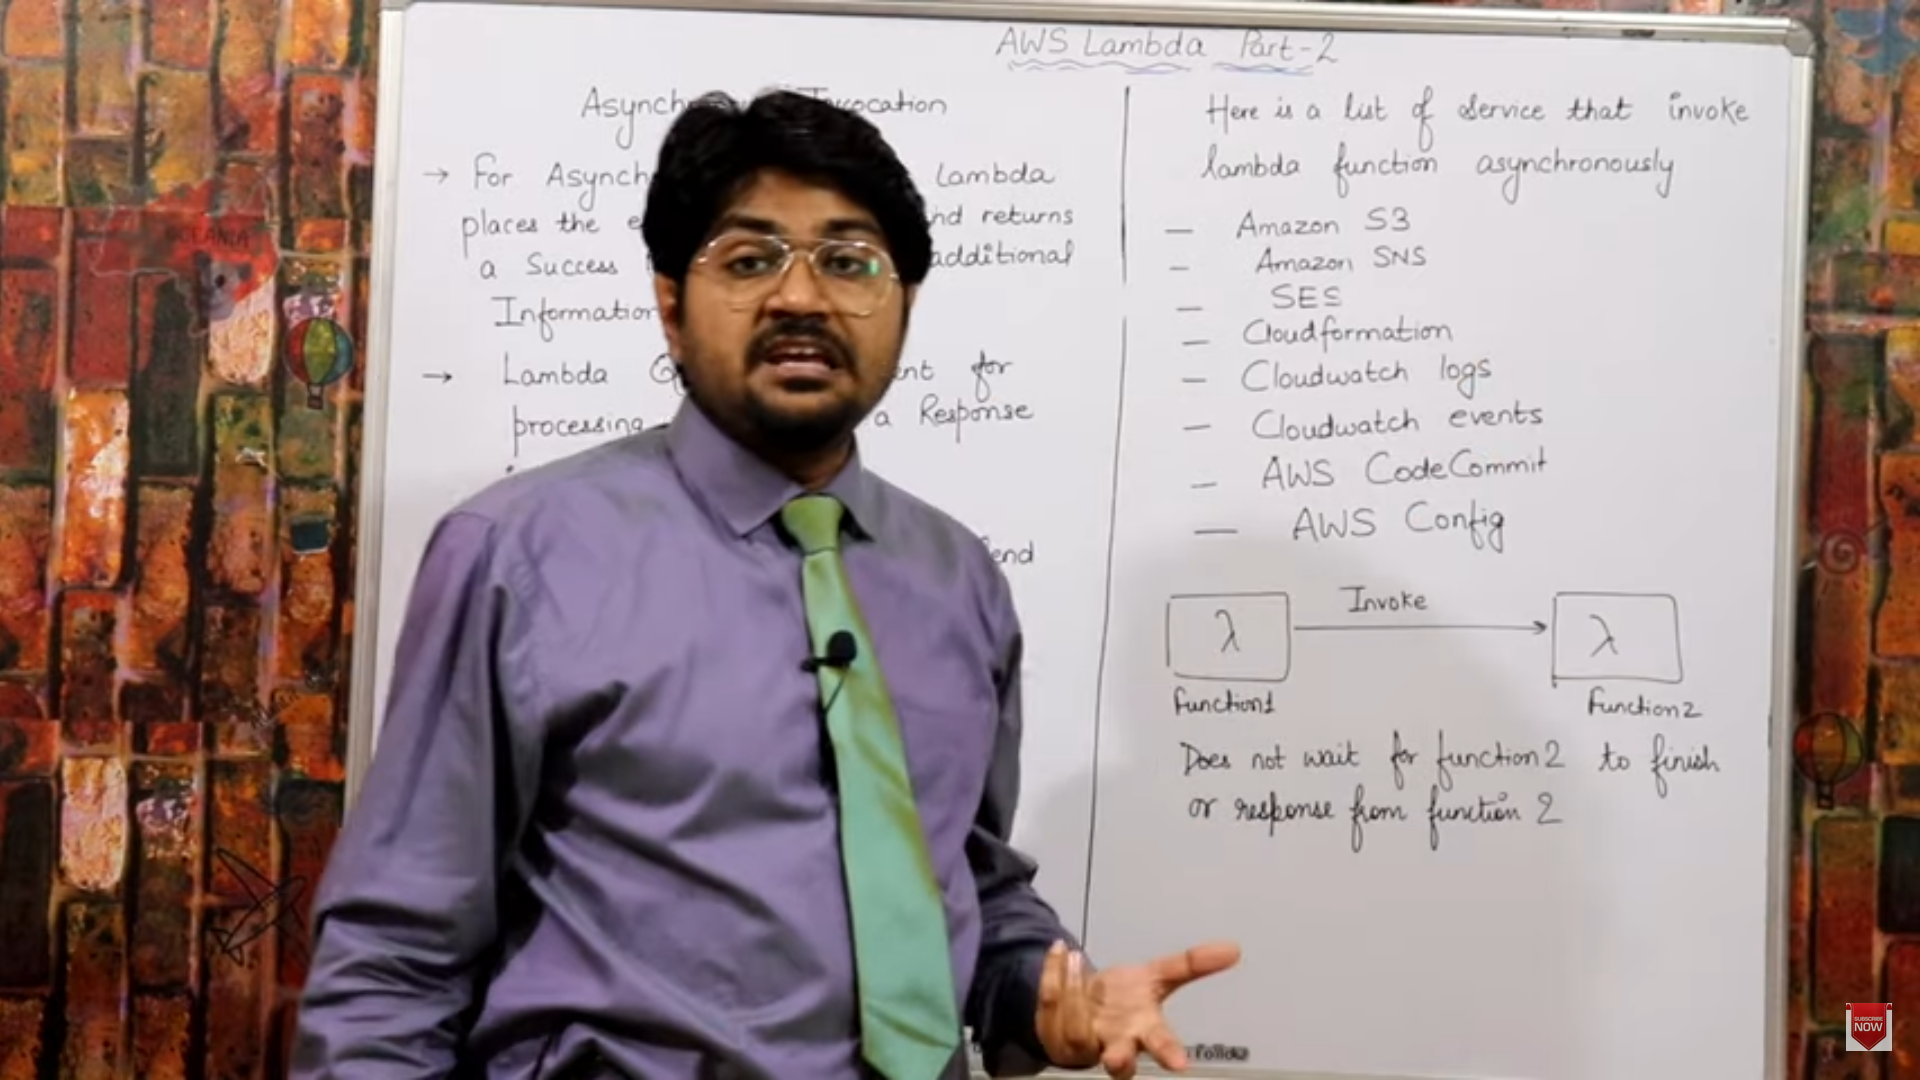 AWS Lambda Part-2
Asynch
ocation
→ For Asynch
Lambda
places the
nd returns
a Success
additional
Information
→ Lambda
for
processing
a Response
end
Here is a list of service that invoke
lambda function asynchronously
— Amazon S3
— Amazon SNS
— SES
— Cloudformation
— Cloudwatch logs
— Cloudwatch events
— AWS CodeCommit
— AWS Config
Invoke
λ
λ
function1
function2
Does not wait for function2 to finish
or response from function 2
follow
SUBSCRIBE
NOW
OCEANIA